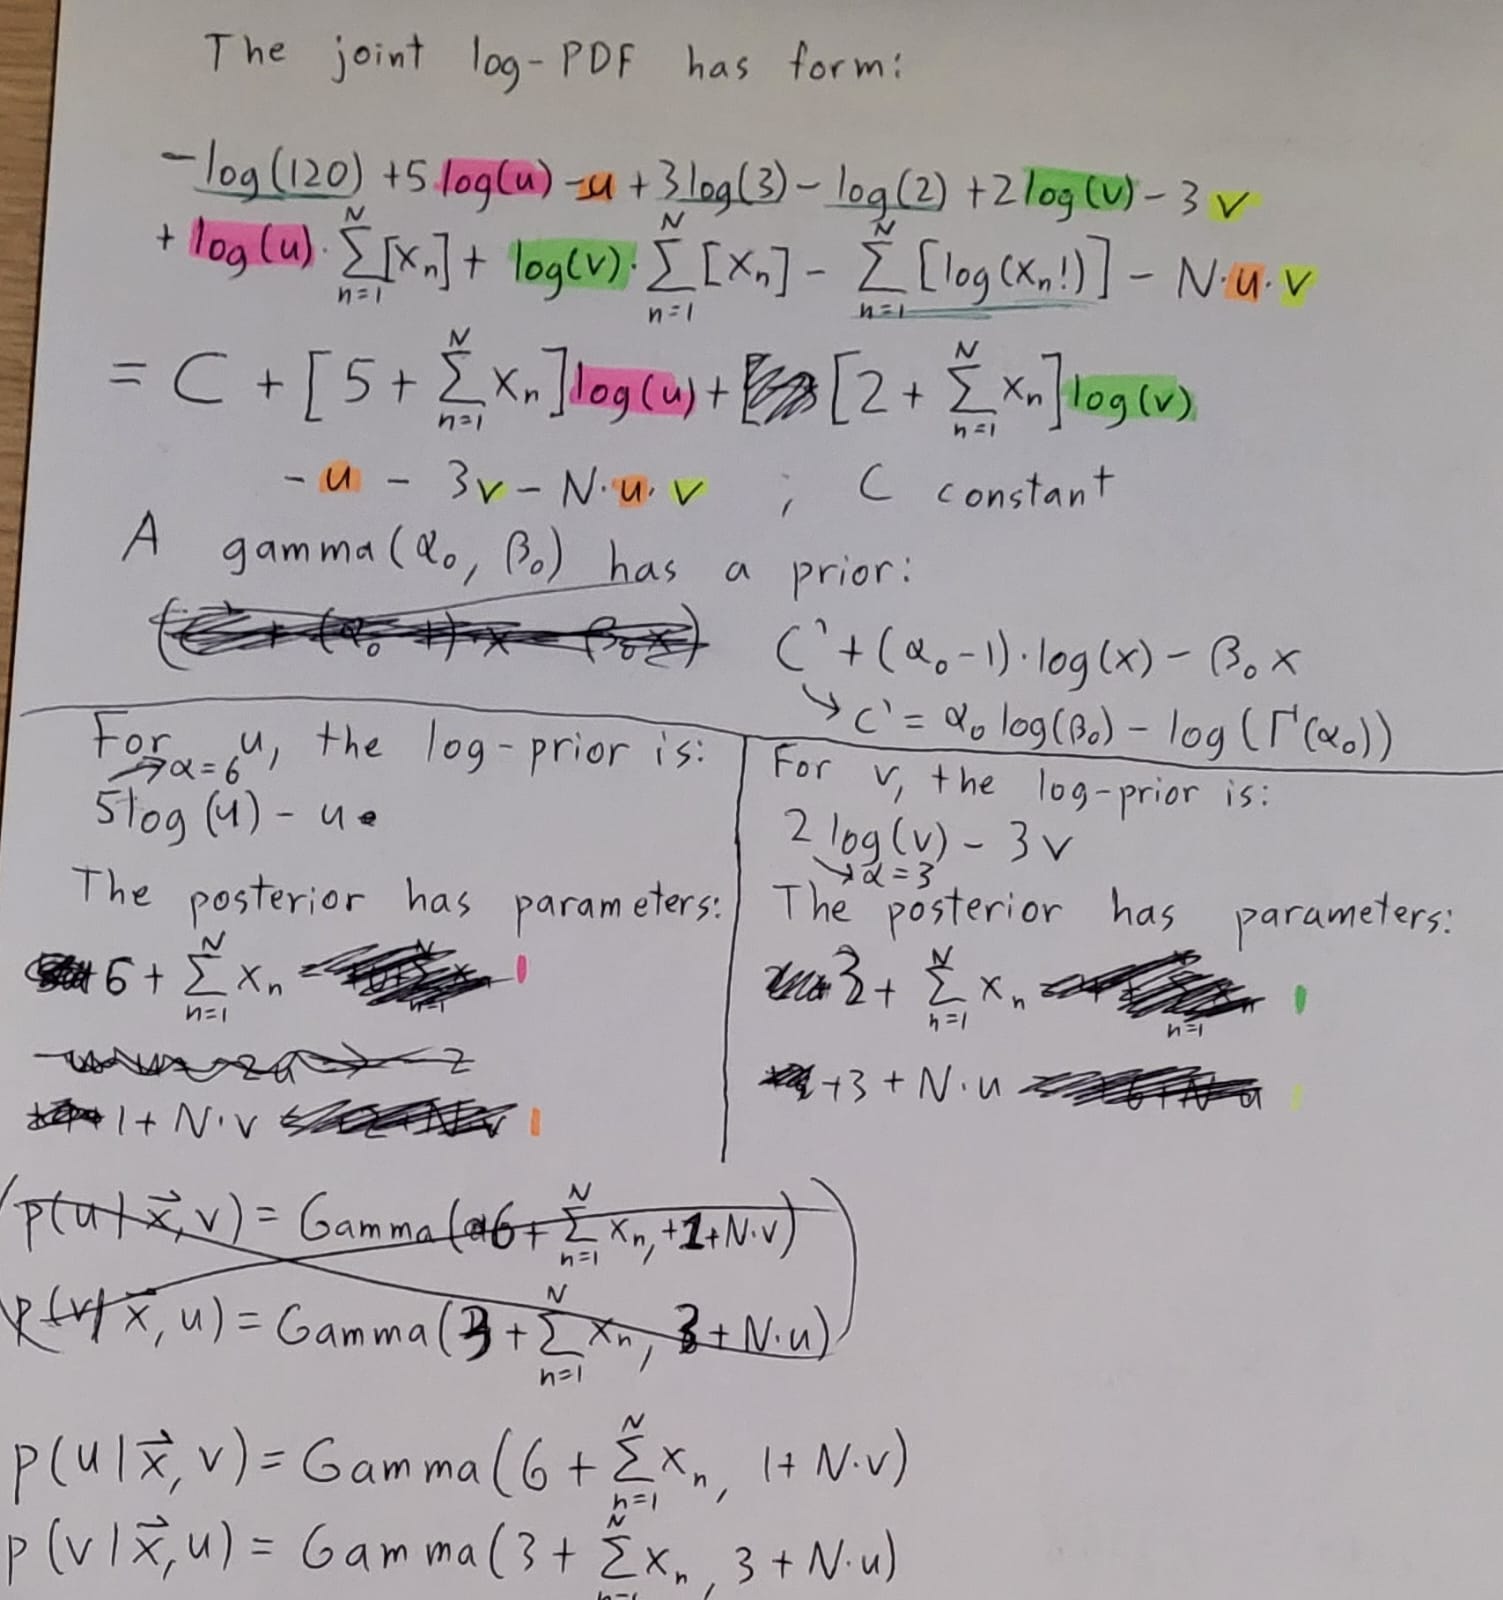 The joint log-PDF has form:
-log(120) +5 log(u) -u +3log(3) - log(2) +2 log(v) - 3 v
+ log(u) · ∑_{n=1}^{N} [x_n] + log(v) · ∑_{n=1}^{N} [x_n] - ∑_{n=1}^{N} [log(x_n!)] - N·u·v
= C + [5 + ∑_{n=1}^{N} x_n] log(u) + [2 + ∑_{n=1}^{N} x_n] log(v)
- u - 3v - N·u·v ; C constant
A gamma(α₀, β₀) has a prior:
C' + (α₀-1)·log(x) - β₀x
↘ C' = α₀ log(β₀) - log(Γ(α₀))
For u, the log-prior is:
→ α=6
5log(u) - u
The posterior has parameters:
6 + ∑_{n=1}^{N} x_n
1 + N·v
For v, the log-prior is:
2 log(v) - 3v
↘ α=3
The posterior has parameters:
3 + ∑_{n=1}^{N} x_n
+3 + N·u
p(u|x⃗, v) = Gamma(6 + ∑_{n=1}^{N} x_n, +1+N·v)
p(v|x⃗, u) = Gamma(3 + ∑_{n=1}^{N} x_n, 3 + N·u)
p(u|x⃗, v) = Gamma(6 + ∑_{n=1}^{N} x_n, 1+ N·v)
p(v|x⃗, u) = Gamma(3 + ∑_{n=1}^{N} x_n, 3 + N·u)